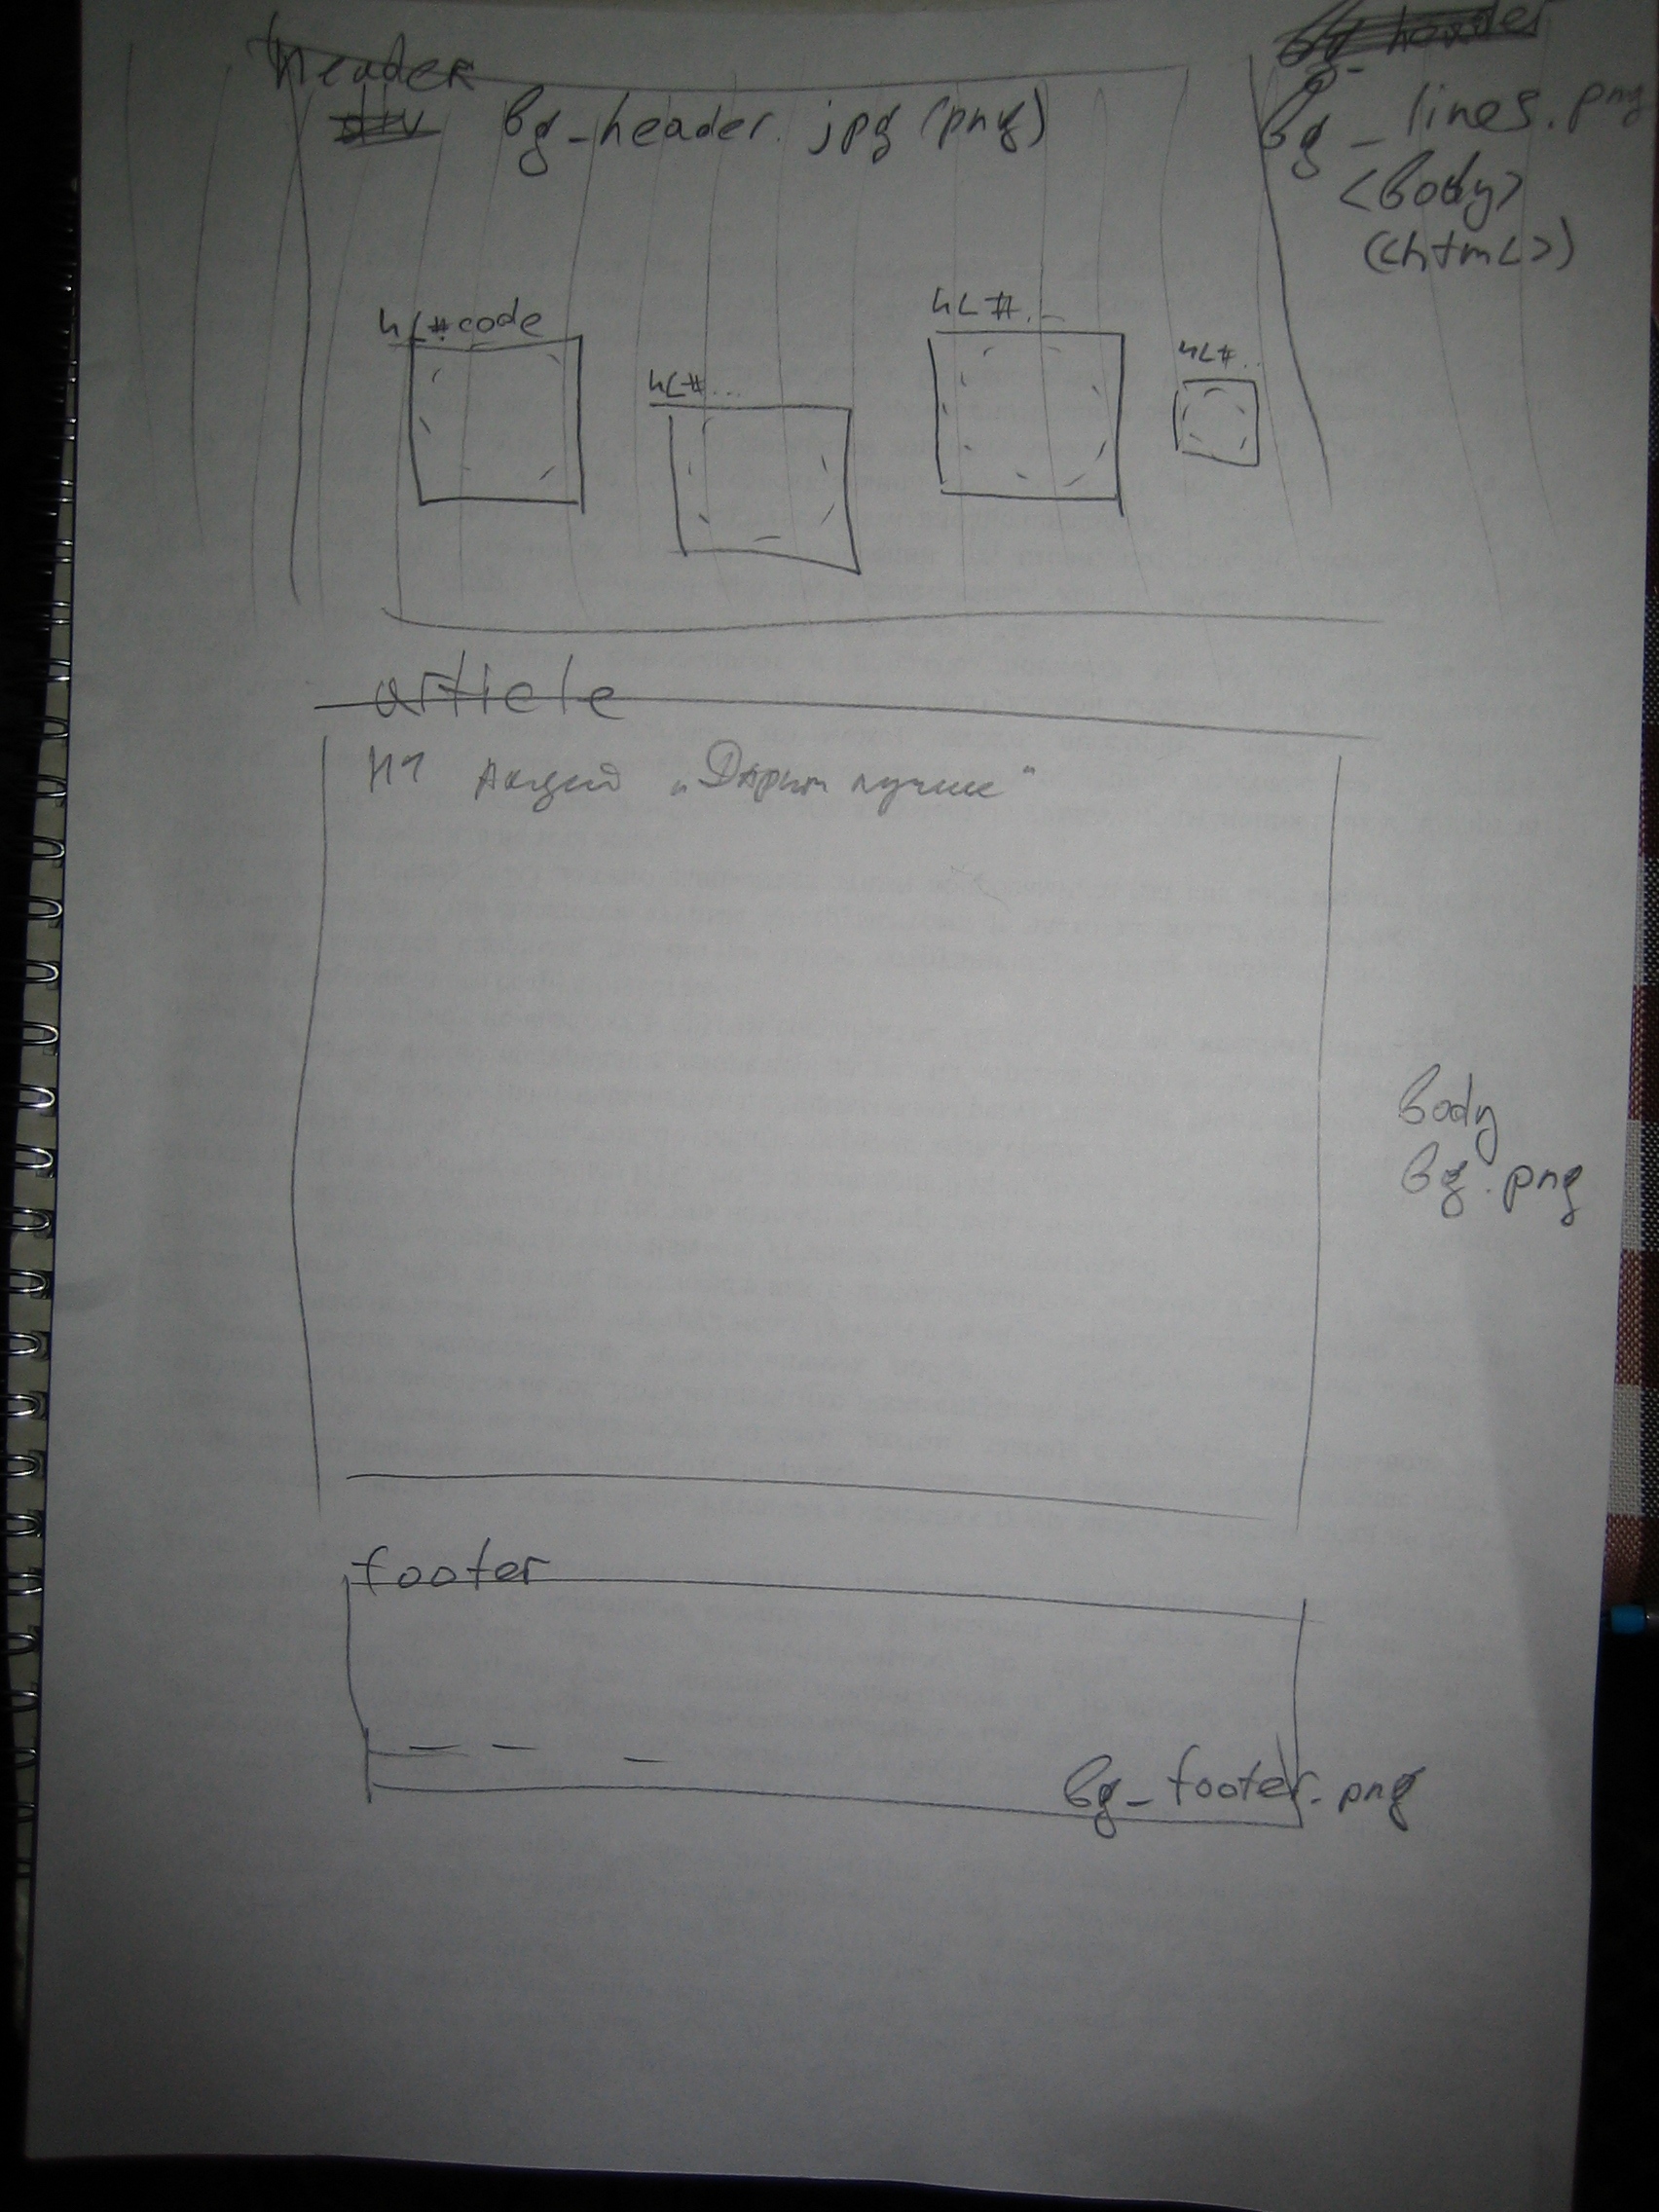 header
bg_header.jpg (png)
bg_lines.png
<body>
(<html>)
hL#code
hL#...
hL#...
hL#...
article
H1 Акция „Дарить лучше"
body
bg.png
footer
bg_footer.png